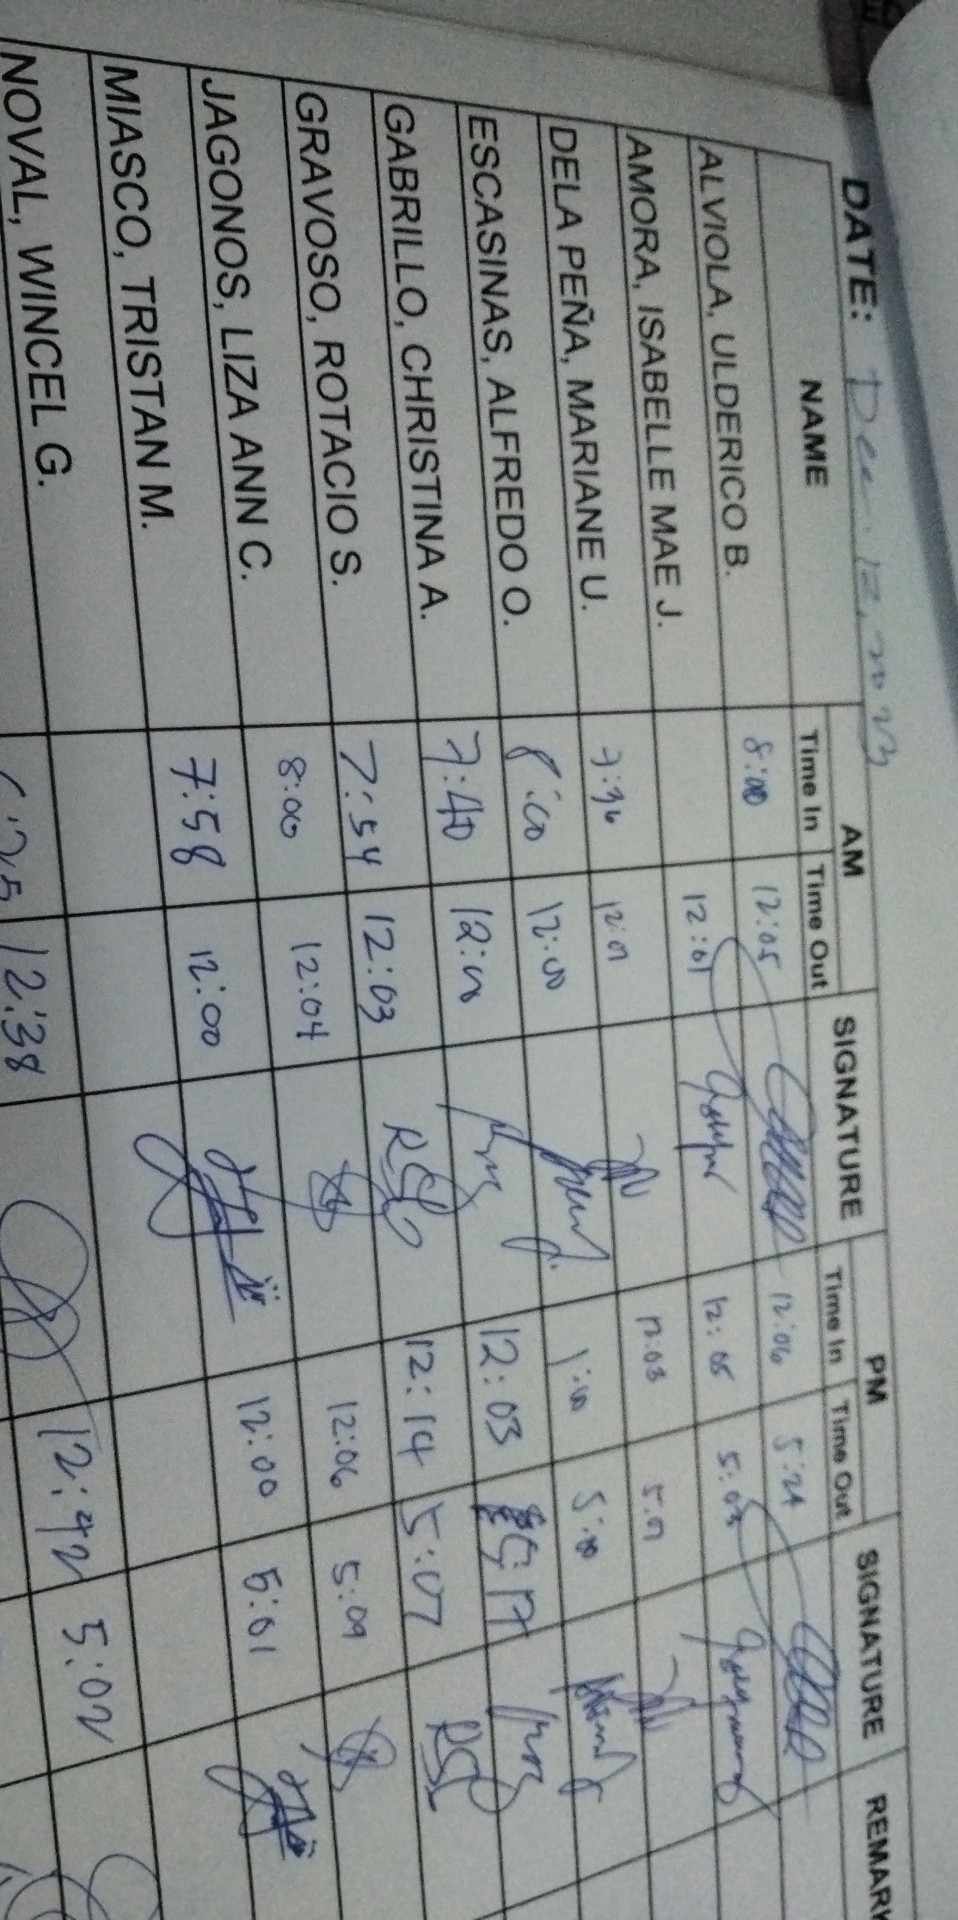 DATE: Dec. 12, 2023
NAME AM SIGNATURE PM SIGNATURE REMARK
Time In Time Out Time In Time Out
ALVIOLA, ULDERICO B. 8:00 12:05 12:06 5:24
AMORA, ISABELLE MAE J. 12:01 12:05 5:03
DELA PEÑA, MARIANE U. 7:36 12:01 12:03 5:01
ESCASINAS, ALFREDO O. 8:00 12:00 1:00 5:00
GABRILLO, CHRISTINA A. 7:40 12:00 12:03 5:17
GRAVOSO, ROTACIO S. 7:54 12:03 12:14 5:07
JAGONOS, LIZA ANN C. 8:00 12:04 12:06 5:09
MIASCO, TRISTAN M. 7:58 12:00 12:00 5:01
NOVAL, WINCEL G.
12:38 12:42 5:02